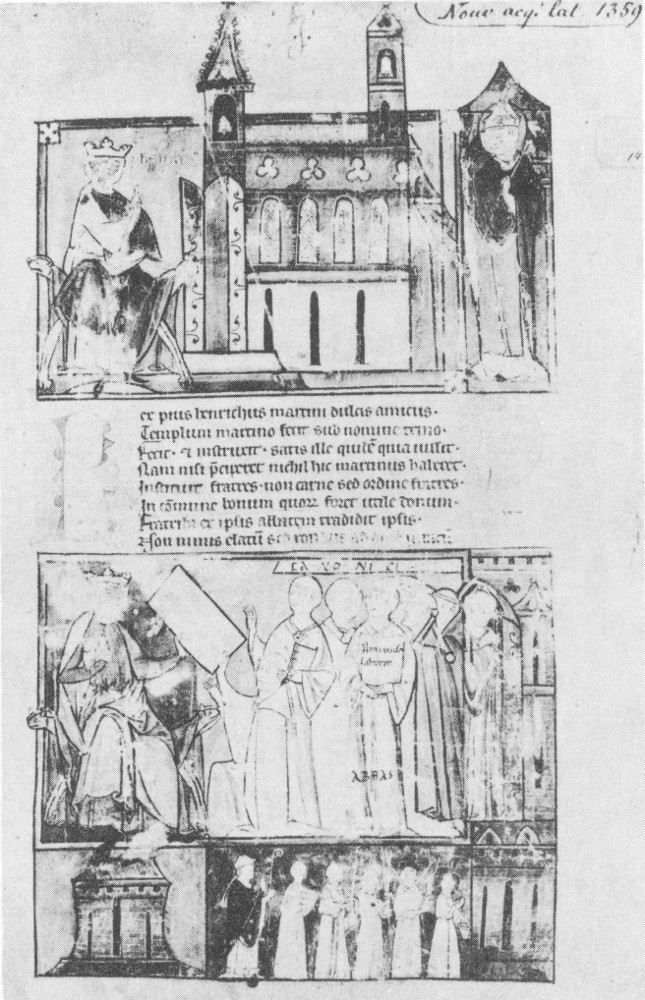 Nouv. acq. lat. 1359
14
ex pius henrichus martini dulcis amicus.
Templum martino fecit sub nomine
fecit. & instruxit. satis ille quidē quia iussit.
Nam nisi p̄ciperet nichil hic martinus haberet.
Instituit fratres. non carne sed ordine fratres.
In cōmune bonum quoꝝ foret utile donum.
Fratribꝫ ex ipsis abbatem tradidit ipsis.
Non nimis elatū sed
CANONICI
ABBAS